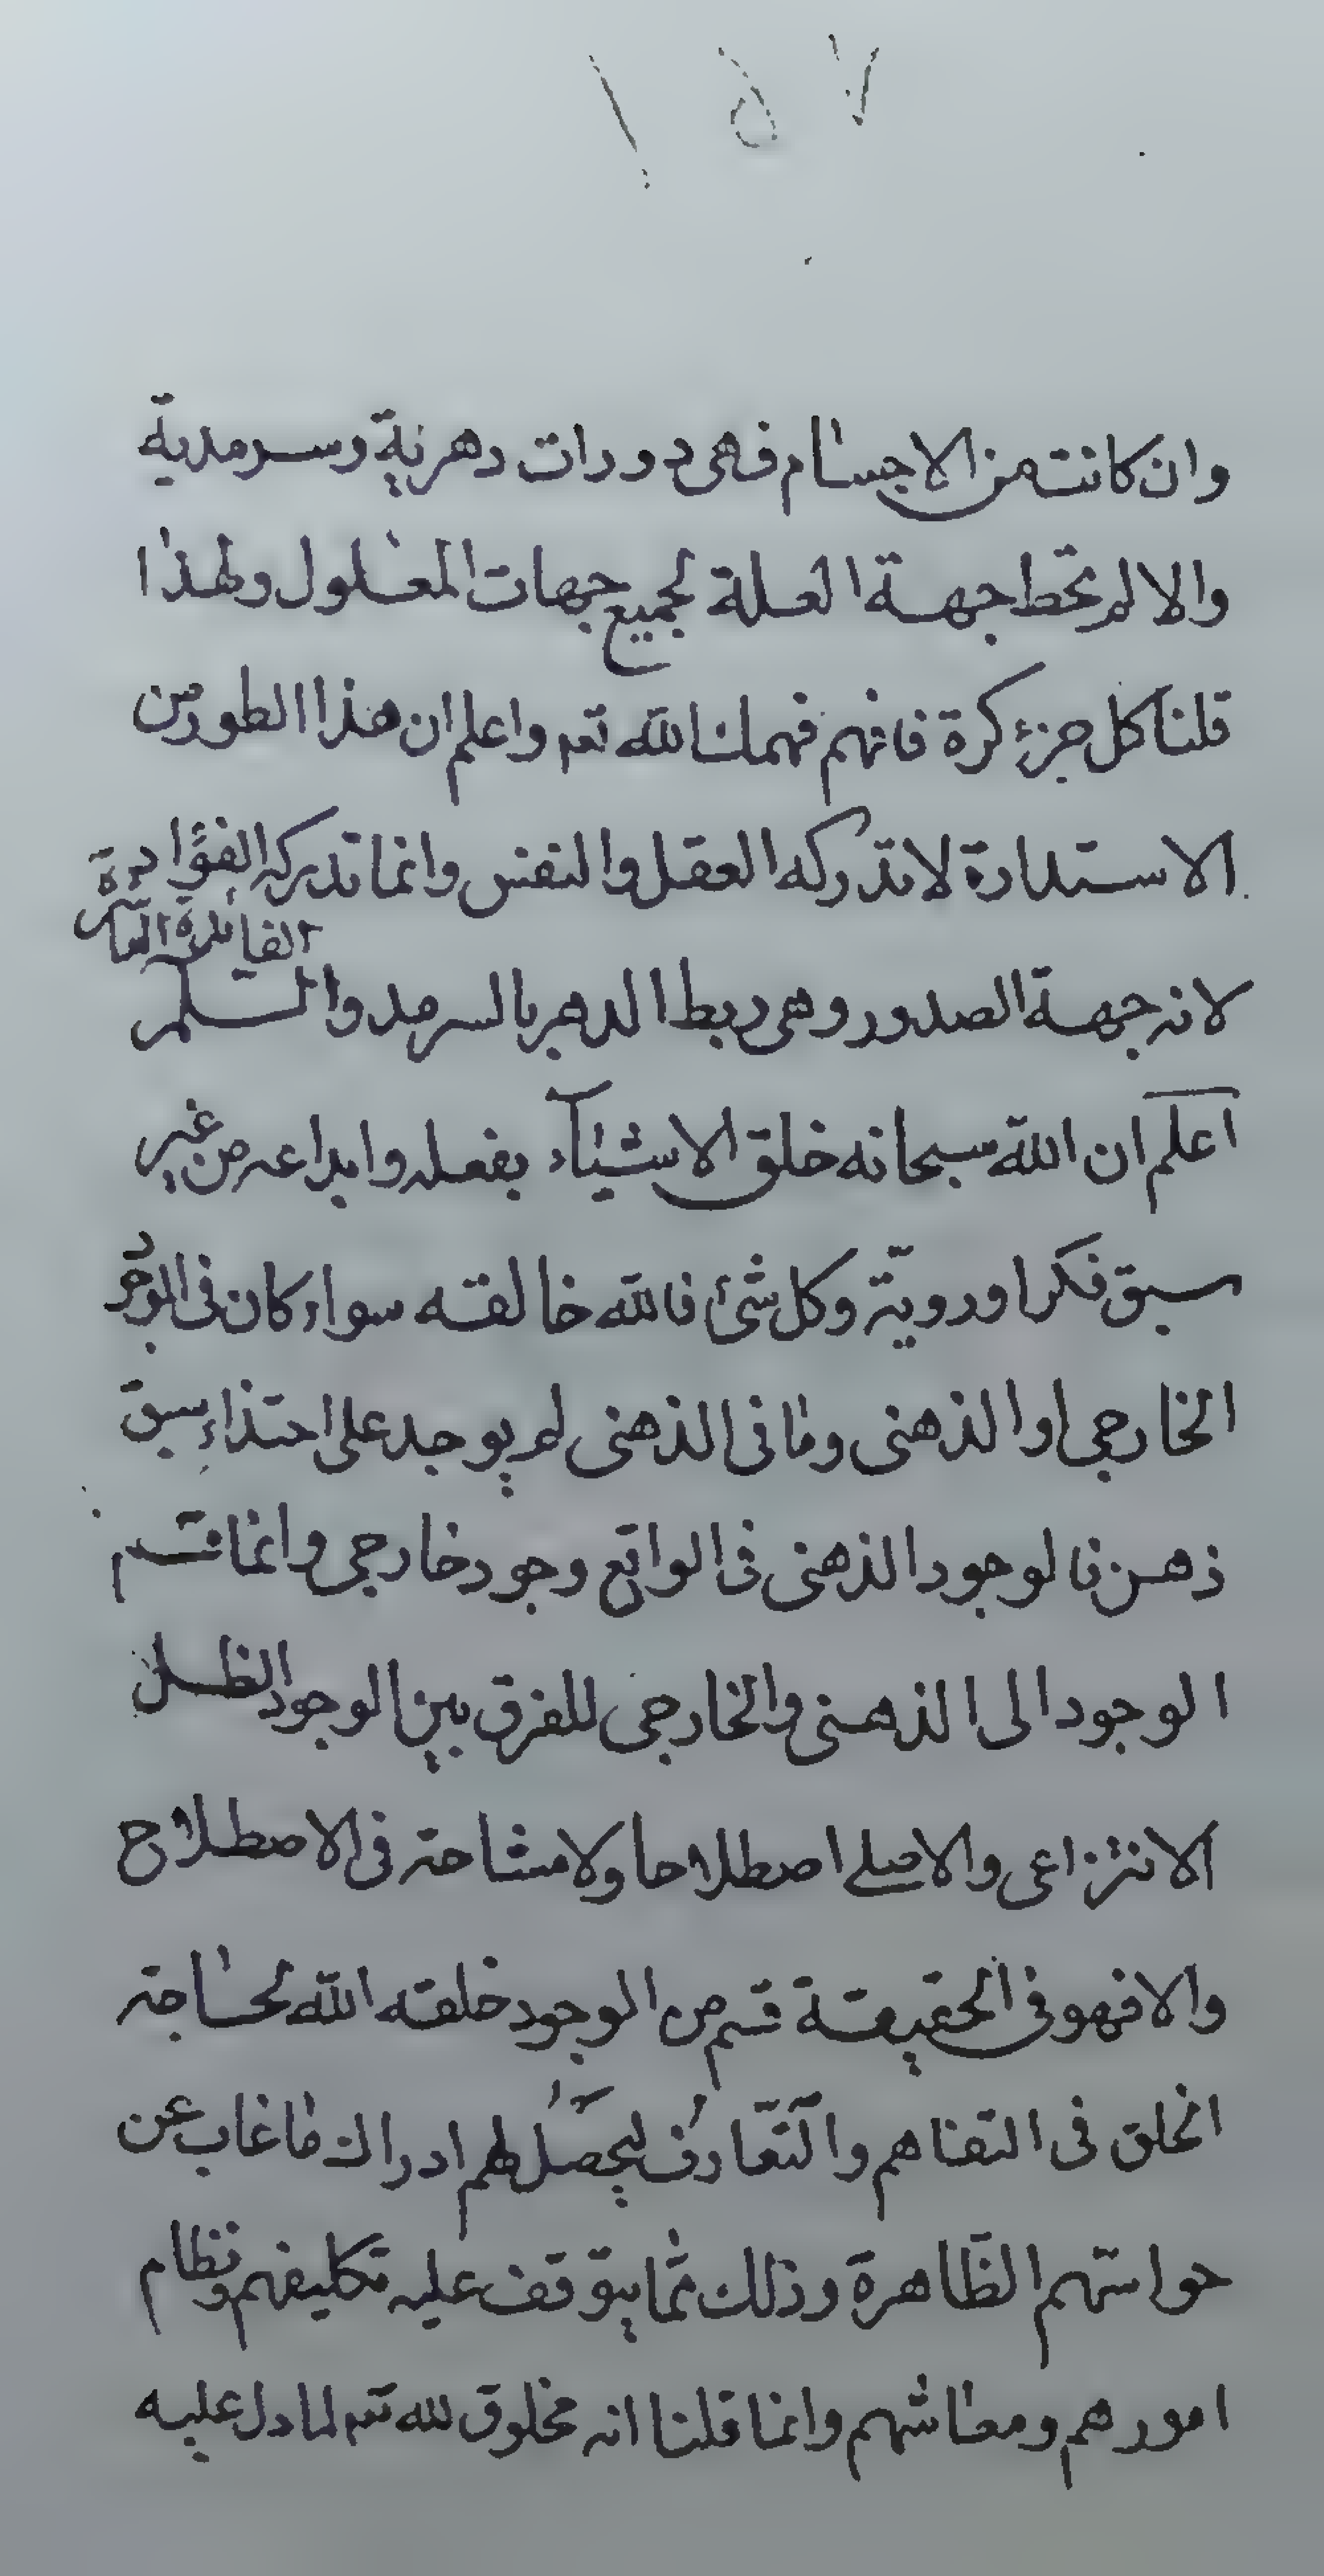 ١٥٧
وان كانت من الاجسام فهى دورات دهرية وسرمدية
والا لم تحط جهة العلة بجميع جهات المعلول ولهذا
قلنا كل جزئ كرة فافهم فهمك الله تعہ واعلم ان هذا الطور من
الاستدارة لا تدركه العقل والنفس وانما تدركه الفؤاد
الفايدة العاشرة
لانه جهة الصدور وهى ربط الدهر بالسرمد والسلم
اعلم ان الله سبحانه خلق الاشيآء بفعله وابداعه من غير
سبق فكر او رويّة وكل شئ فالله خالقه سواء كان فى الوجود
الخارجى او الذهنى وما فى الذهنى لم يوجد على احتذاء سبق
ذهن فالوجود الذهنى فى الواقع وجود خارجى وانما قسم
الوجود الى الذهنى والخارجى للفرق بين الوجود الظلى
الانتزاعى والاصلے اصطلاحا ولا مشاحة فى الاصطلاح
والا فهو فى الحقيقة قسم من الوجود خلقه الله لحاجة
الخلق فى التفاهم والتّعارف ليحصل لهم ادراك ما غاب عن
حواسّهم الظّاهرة وذلك ممّا يتوقف عليه تكليفهم ونظام
امورهم ومعاشهم وانما قلنا انه مخلوق لله تعہ لما دل عليه